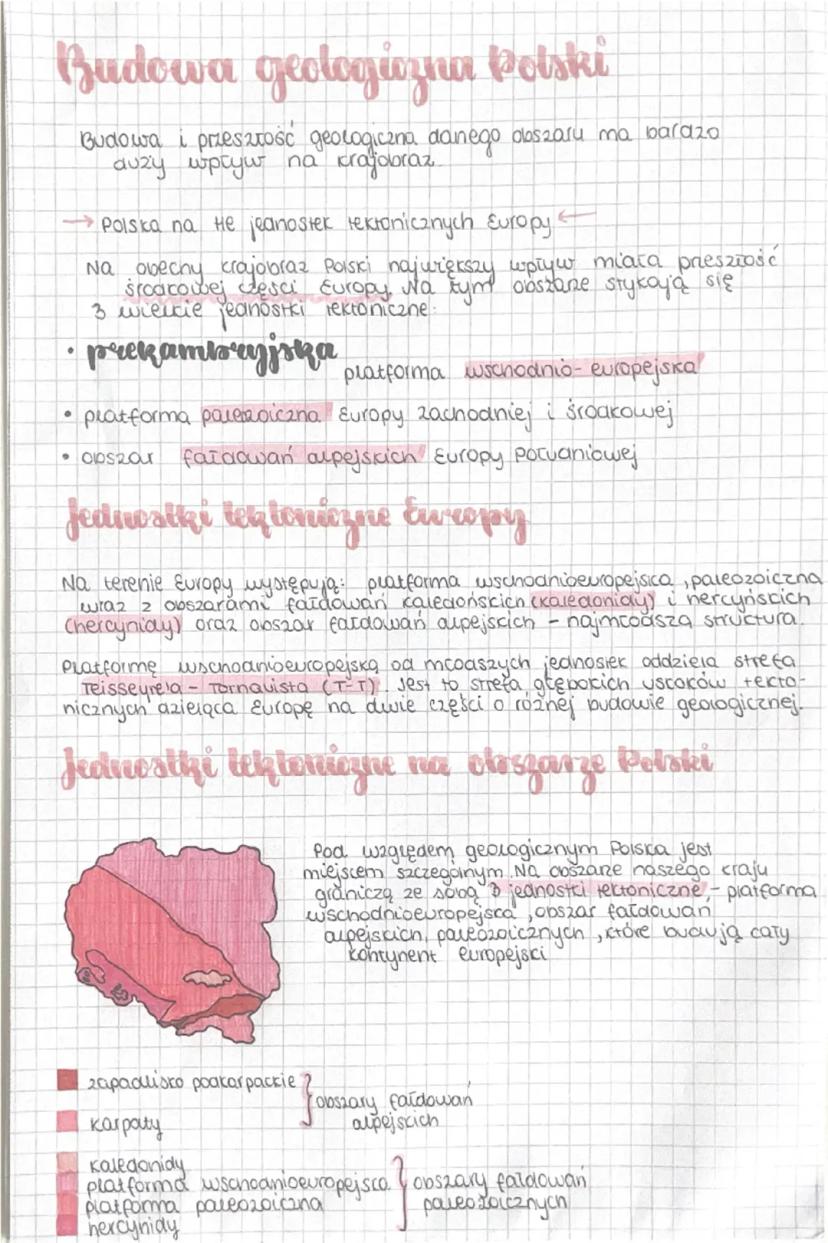 Budowa geologiczna Polski
Budowa i przeszłość geologiczna danego obszaru ma bardzo
duży wpływ na krajobraz
Polska na tle jednostek tektonicznych Europy
Na obecny krajobraz Polski największy wpływ miała przeszłość
środkowej części Europy. Na tym obszarze stykają się
3 wielkie jednostki tektoniczne:
• prekambryjska
platforma wschodnio-europejska
• platforma paleozoiczna Europy zachodniej i środkowej
• obszar fałdowań alpejskich Europy Południowej
Jednostki tektoniczne Europy
Na terenie Europy występują: platforma wschodnioeuropejska, paleozoiczna
wraz z obszarami fałdowań kaledońskich (kaledonidy) i hercyńskich
(hercynidy) oraz obszar fałdowań alpejskich - najmłodsza struktura.
Platformę wschodnioeuropejską od młodszych jednostek oddziela strefa
Teisseyre'a - Tornquista (T-T). Jest to strefa głębokich uskoków tekto-
nicznych dzieląca Europę na dwie części o różnej budowie geologicznej.
Jednostki tektoniczne na obszarze Polski
Pod względem geologicznym Polska jest
miejscem szczególnym. Na obszarze naszego kraju
graniczą ze sobą 3 jednostki tektoniczne, - platforma
wschodnioeuropejska, obszar fałdowań
alpejskich, paleozoicznych, które budują cały
kontynent europejski
zapadlisko podkarpackie
obszary fałdowań
alpejskich
karpaty
kaledonidy
platforma wschodnioeuropejska
obszary fałdowań
paleozoicznych
platforma paleozoiczna
hercynidy